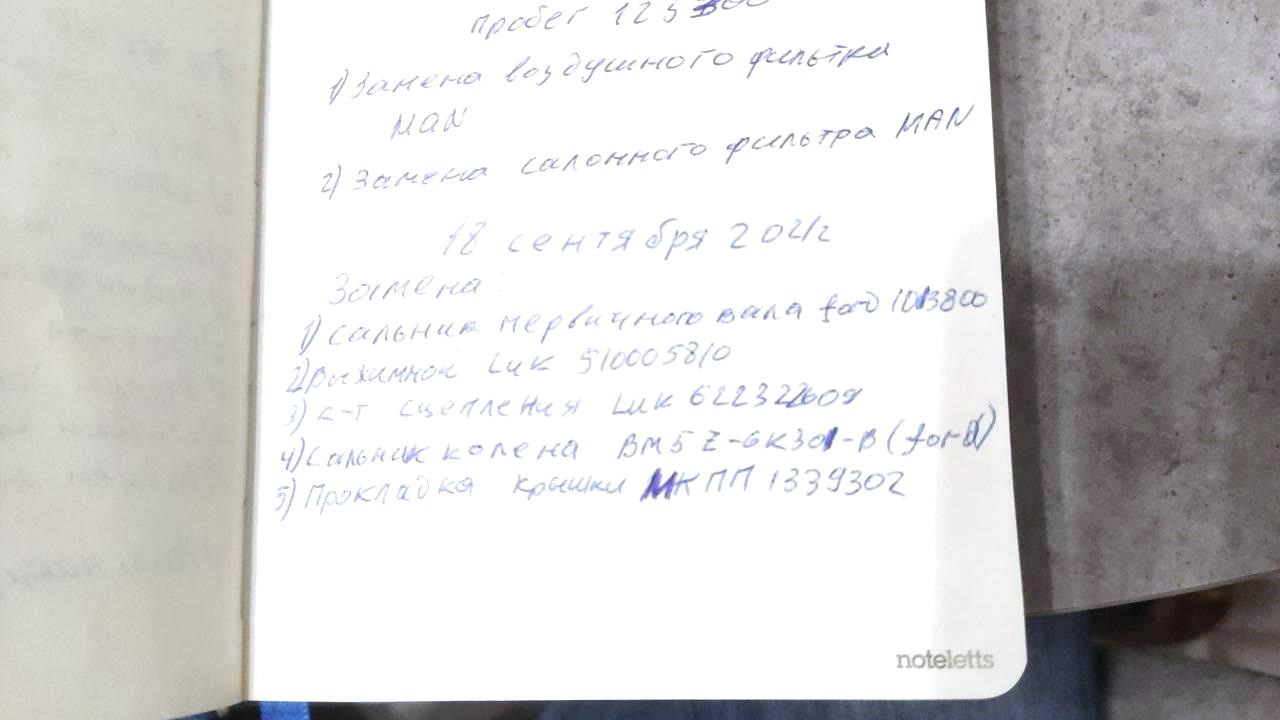 Пробег 125300
1) Замена воздушного фильтра
MAN
2) Замена салонного фильтра MAN
18 сентября 2021г
Замена:
1) Сальник первичного вала ford 1013800
2) Выжимной Luk 510005810
3) к-т сцепления Luk 622322609
4) Сальник колена BM5Z-6K301-B (ford)
5) Прокладка крышки МКПП 1339302
noteletts